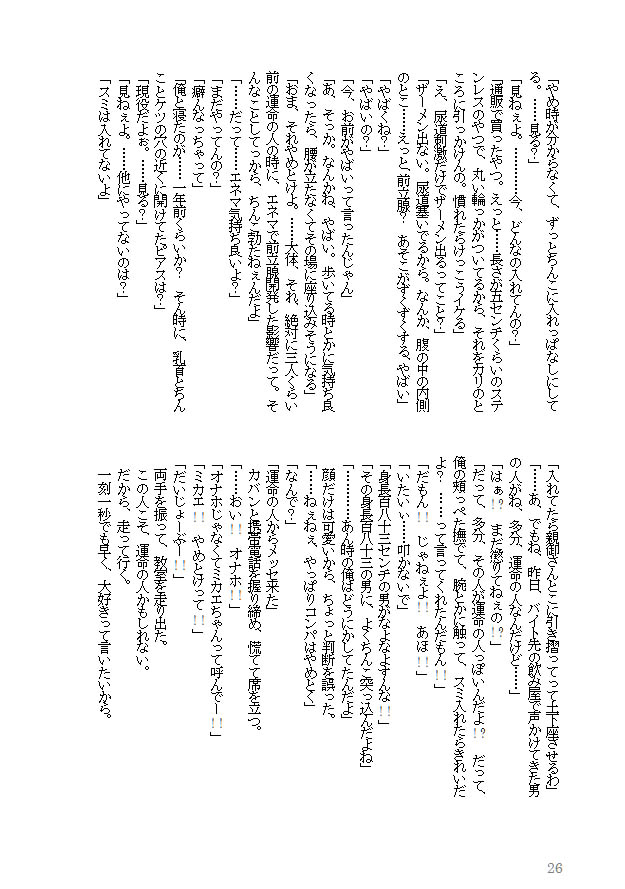 「やめ時が分からなくて、ずっとちんこに入れっぱなしにして
る。……見る？」
「見ねぇよ。…………今、どんなの入れてんの？」
「通販で買ったやつ。えっと……長さが五センチくらいのステ
ンレスのやつで、丸い輪っかがついてるから、それをカリのと
ころに引っかけんの。慣れたらけっこうイケる」
「え、尿道刺激だけでザーメン出るってこと？」
「ザーメン出ない。尿道塞いでるから。なんか、腹の中の内側
のとこ……えっと、前立腺？　あそこがずくずくする、やばい」
「やばくね？」
「やばいの？」
「今、お前がやばいって言ったんじゃん」
「あ、そっか。なんかね、やばい。歩いてる時とかに気持ち良
くなったら、腰が立たなくてその場に座り込みそうになる」
「おま、それやめとけよ。……大体、それ、絶対に三人くらい
前の運命の人の時に、エネマで前立腺開発した影響だって。そ
んなことしてっから、ちんこ勃たねぇんだよ」
「……だって……エネマ気持ち良いよ？」
「まだやってんの？」
「癖んなっちゃって」
「俺と寝たのが……一年前くらいか？　そん時に、乳首とちん
ことケツの穴の近くに開けてたピアスは？」
「現役だよぉ。……見る？」
「見ねぇよ。……他にやってないのは？」
「スミは入れてないよ」
「入れてたら親御さんとこに引き摺ってって土下座させるわ」
「……あ、でもね、昨日、バイト先の飲み屋で声かけてきた男
の人がね、多分、運命の人なんだけど……」
「はぁ!?　まだ懲りてねぇの!?」
「だって、多分、その人が運命の人っぽいんだよ!?　だって、
俺の頬っぺた撫でて、腕とかに触って、スミ入れたらきれいだ
よ？　……って言ってくれたんだもん!!」
「だもん!!　じゃねぇよ!!　あほ!!」
「いたいぃ……叩かないで」
「身長百八十三センチの男がなよなよすんな!!」
「その身長百八十三の男に、よくちんこ突っ込んだよね」
「………あん時の俺はどうにかしてたんだよ」
顔だけは可愛いから、ちょっと判断を誤った。
「……ねぇねぇ、やっぱりコンパはやめとく」
「なんで？」
「運命の人からメッセ来た」
カバンと携帯電話を握り締め、慌てて席を立つ。
「……おい!!　オナホ!!」
「オナホじゃなくてミカエちゃんって呼んでー!!」
「ミカエ!!　やめとけって!!」
「だいじょーぶー!!」
両手を振って、教室を走り出た。
この人こそ、運命の人かもしれない。
だから、走って行く。
一刻一秒でも早く、大好きって言いたいから。
26